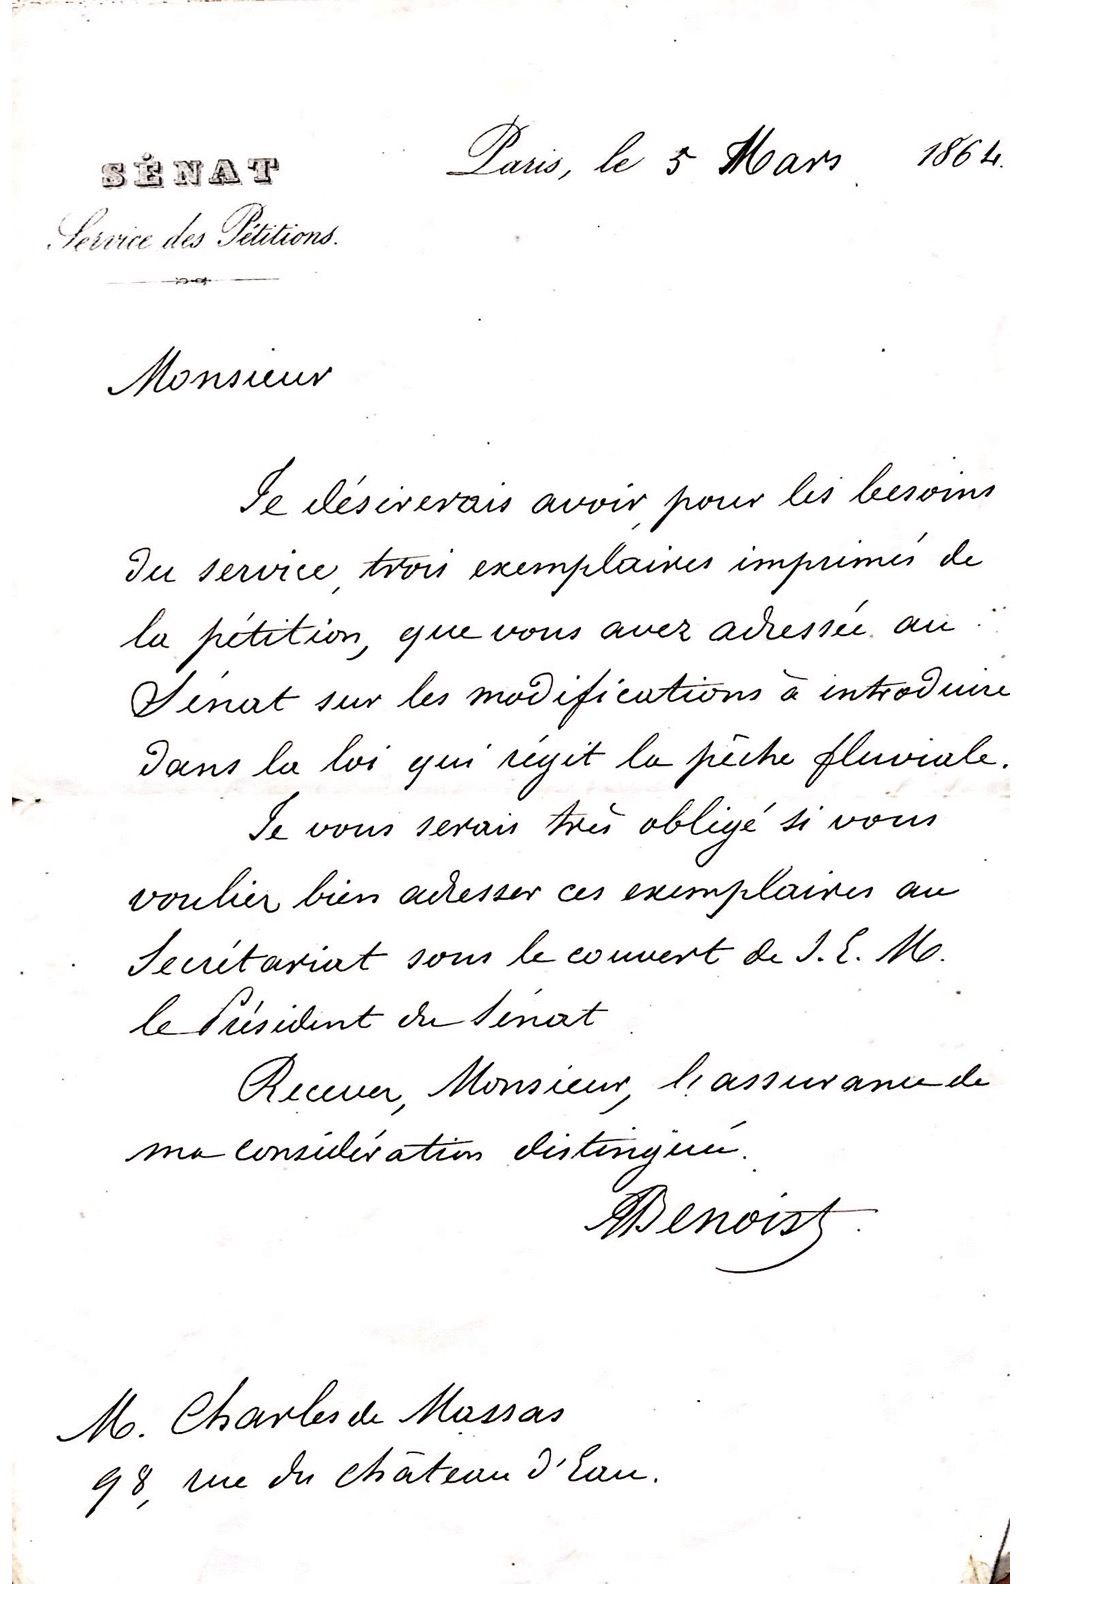 SÉNAT
Service des Pétitions.
Paris, le 5 Mars 1864.
Monsieur
Je désirerais avoir, pour les besoins
du service, trois exemplaires imprimés de
la pétition, que vous avez adressée au
Sénat sur les modifications à introduire
dans la loi qui régit la pêche fluviale.
Je vous serais très obligé si vous
vouliez bien adresser ces exemplaires au
Secrétariat sous le couvert de S. E. M.
le Président du Sénat
Recevez, Monsieur, l'assurance de
ma considération distinguée.
ABenoist
M. Charles de Massas
98, rue du Château d'Eau.